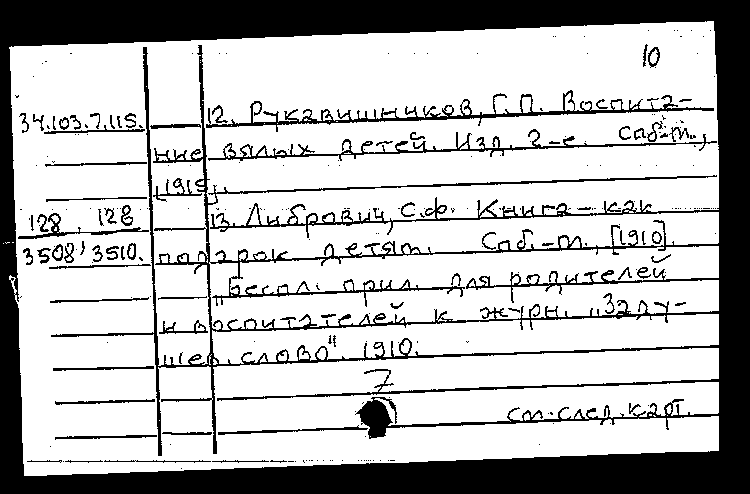 10
34.103.7.115. 12. Рукавишников, Г.П. Воспита-
ние вялых детей. Изд. 2-е. Спб.-М.,
[1915].
128 , 128 13. Либрович, С.Ф. Книга-как
3508, 3510. подарок детям. Спб.-М., [1910].
„Беспл. прил. для родителей
и воспитателей к журн. „Заду-
шев. слово". 1910.
7
см. след. карт.